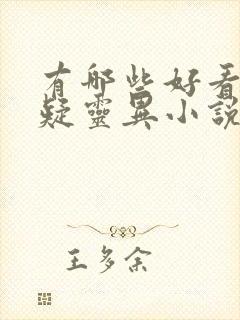 有哪些好看
疑靈異小說
王多余